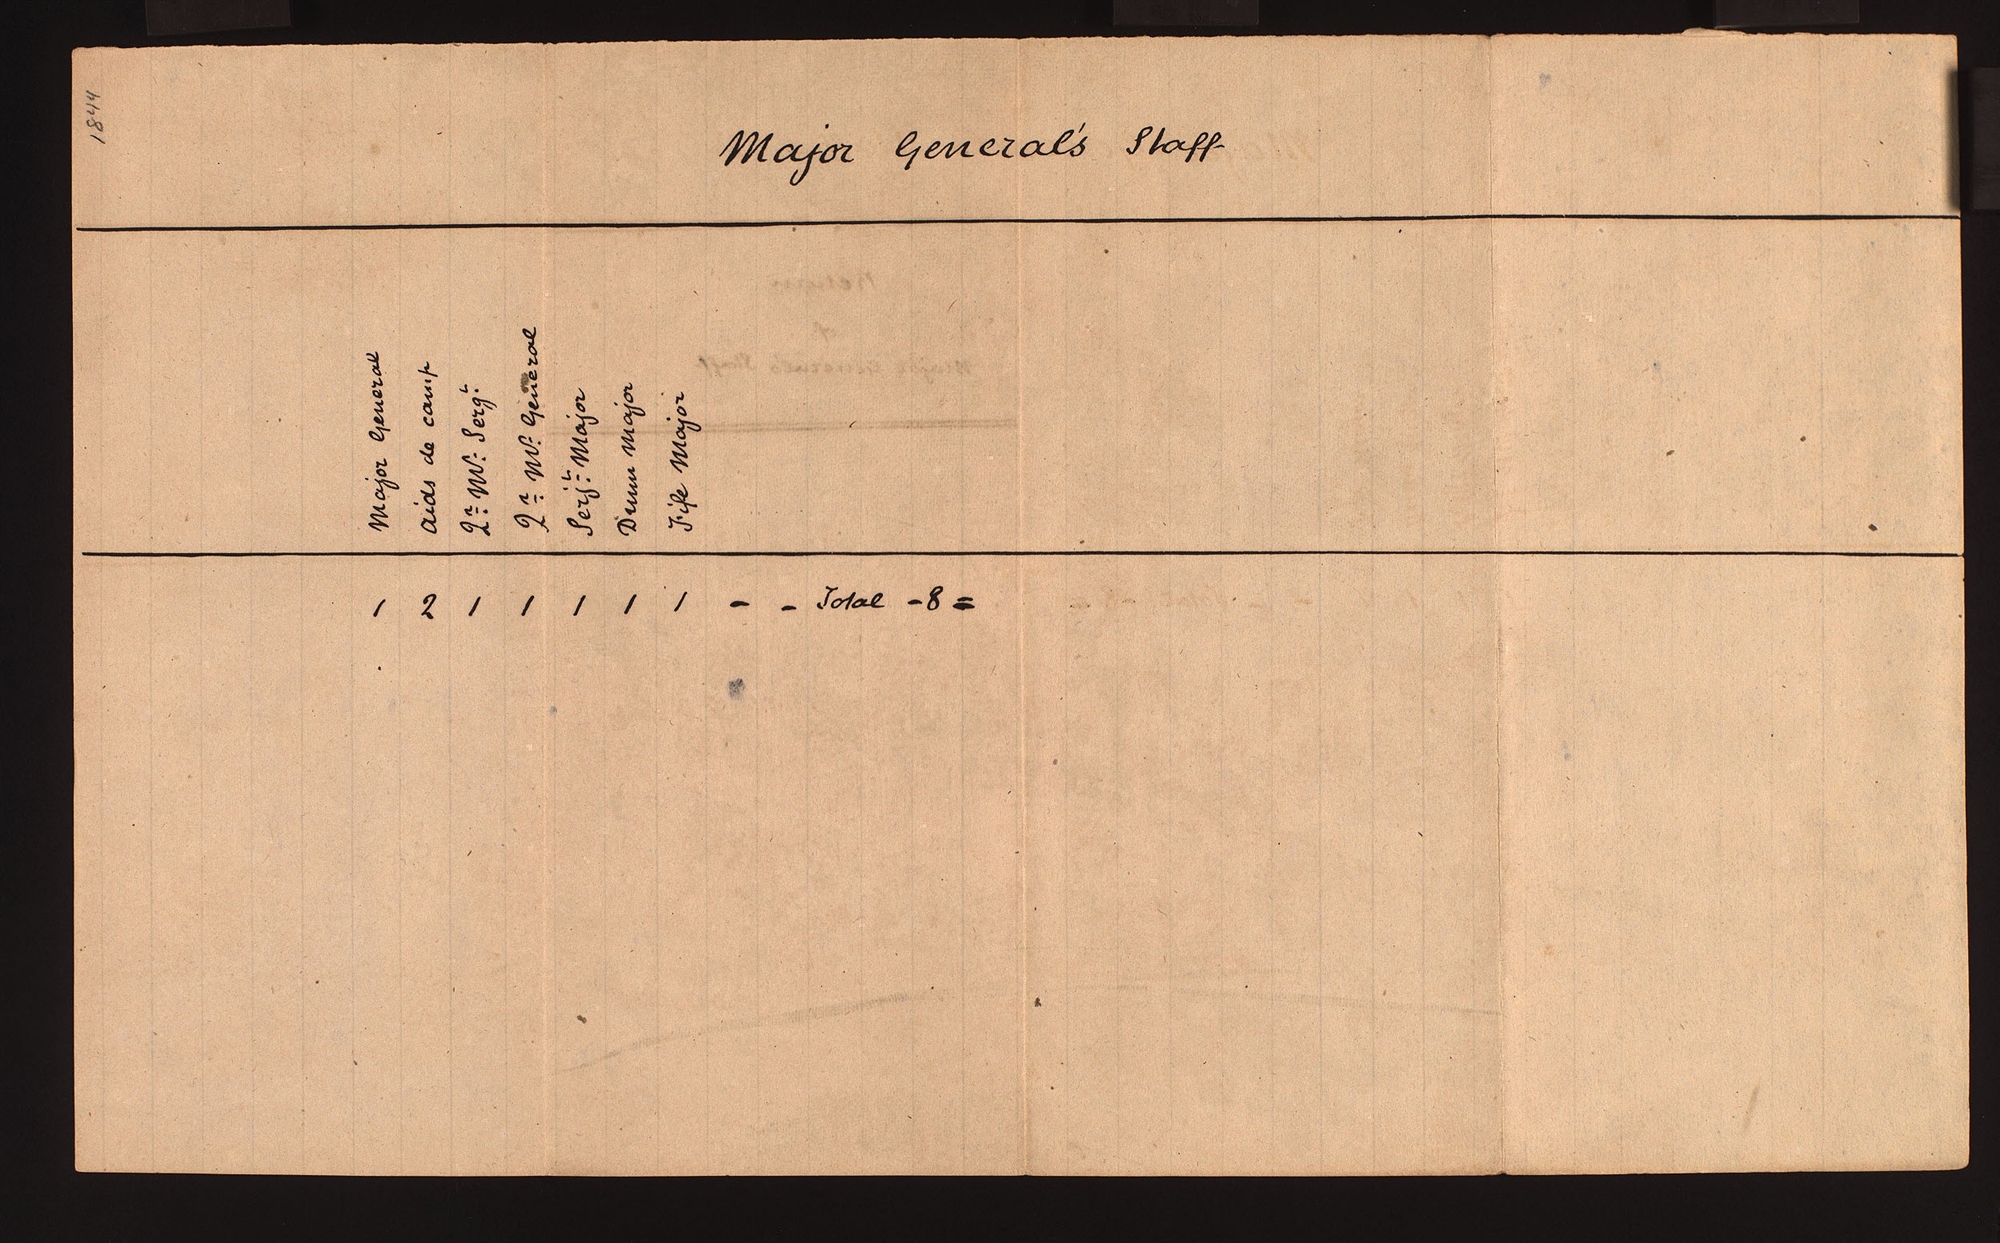 1844
Major General's Staff
Major General
Aids de camp
Qr. Mr. Sergt.
Qr. Mr. General
Serjt. Major
Drum Major
Fife Major
1 2 1 1 1 1 1 - - Total - 8 =
Return
of
Major Generals Staff